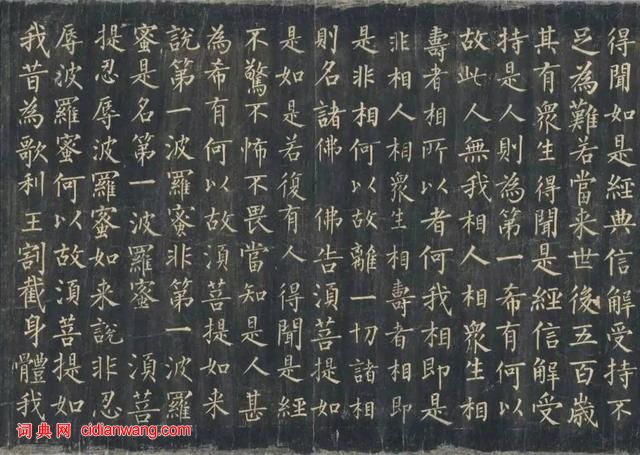 得聞如是經典信解受持不
足為難若當来世後五百歲
其有衆生得聞是經信解受
持是人則為第一希有何以
故此人無我相人相衆生相
壽者相所以者何我相即是
非相人相衆生相壽者相即
是非相何以故離一切諸相
則名諸佛 佛告湏菩提如
是如是若復有人得聞是經
不驚不怖不畏當知是人甚
為希有何以故湏菩提如来
說第一波羅蜜非第一波羅
蜜是名第一波羅蜜 湏菩
提忍辱波羅蜜如来說非忍
辱波羅蜜何以故湏菩提如
我昔為歌利王割截身體我
词典网 cidianwang.com